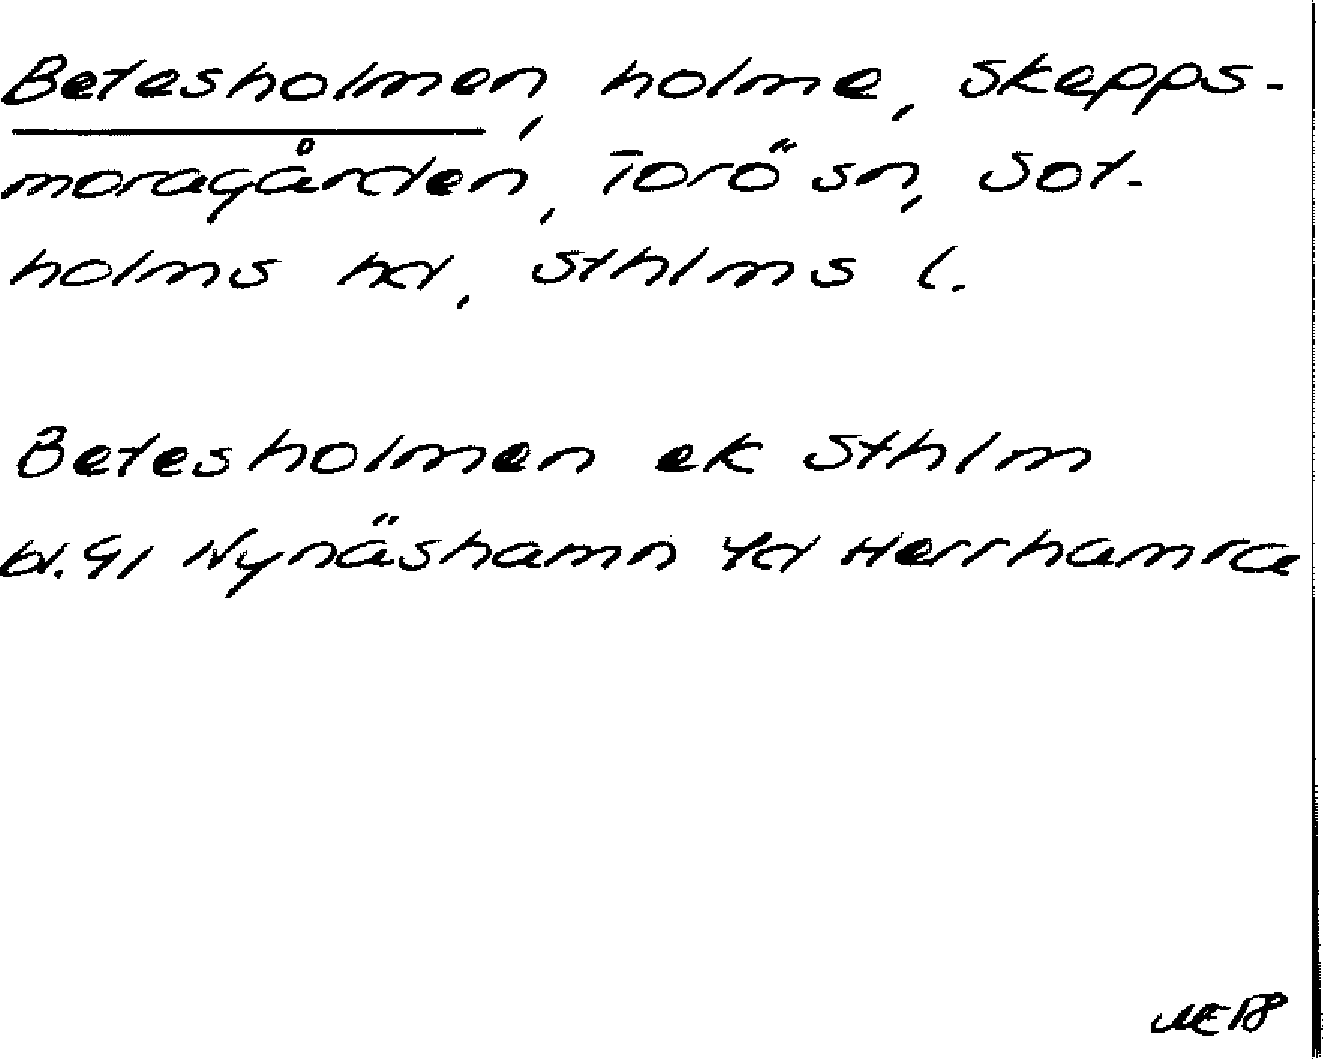 Betesholmen, holme, Skepps-
moragården, Torö sn, Sot-
holms hd, Sthlms l.
Betesholmen ek Sthlm
bl. 91 Nynäshamn 4d Herrhamra